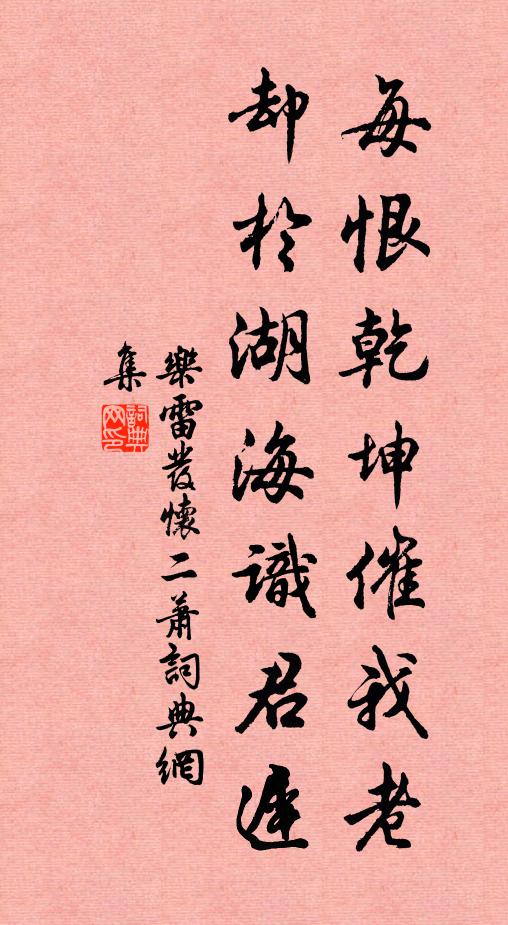 每恨乾坤催我老
却於湖海識君遲
樂雷發懷二蕭詞典網
集
詞典
网印